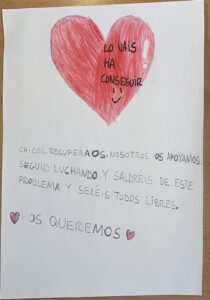 LO VAIS
HA
CONSEGUIR
CHICOS, RECUPERAOS, NOSOTROS OS APOYAMOS.
SEGUID LUCHANDO Y SALDRÉIS DE ESTE
PROBLEMA Y SERÉIS TODOS LIBRES.
OS QUEREMOS